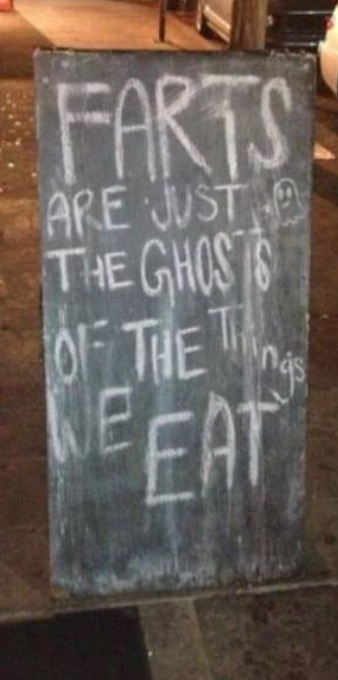 FARTS
ARE JUST
THE GHOSTS
OF THE Things
WE EAT